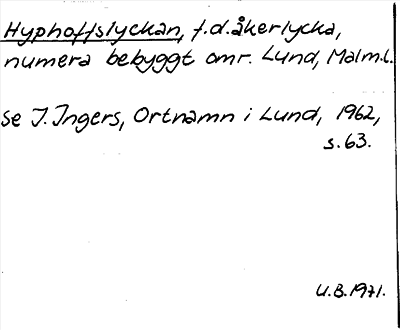 Hyphoffslyckan, f.d. åkerlycka,
numera bebyggt omr. Lund, Malm.l.
se J. Ingers, Ortnamn i Lund, 1962,
s. 63.
U.B. 1971.